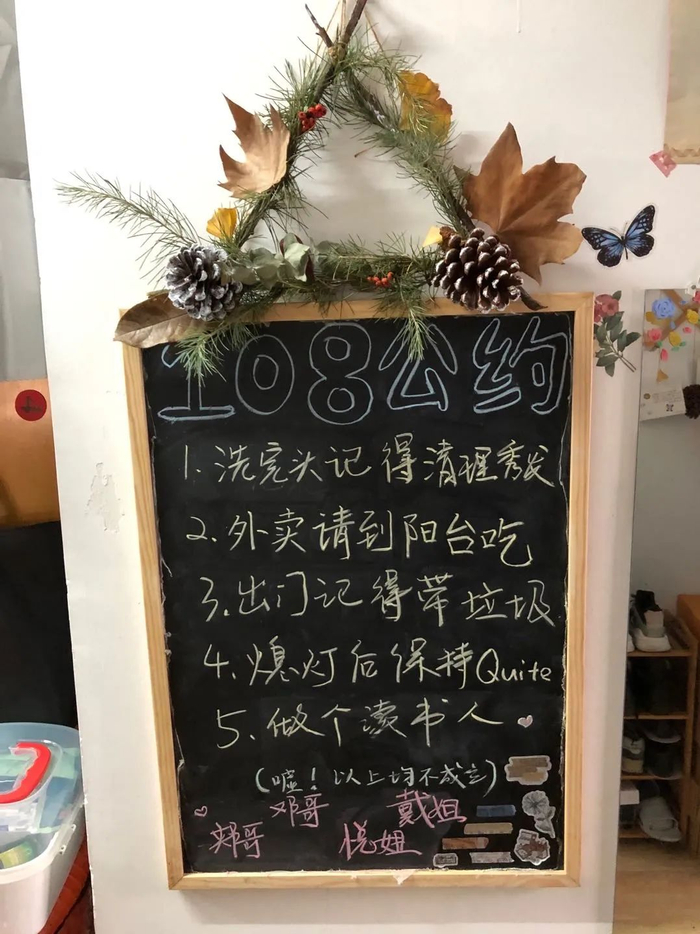 108公约
1. 洗完头记得清理秀发
2. 外卖请到阳台吃
3. 出门记得带垃圾
4. 熄灯后保持Quite
5. 做个渎书人
(嘘！以上均不成立)
邓哥 戴姐
郏哥 悦妞